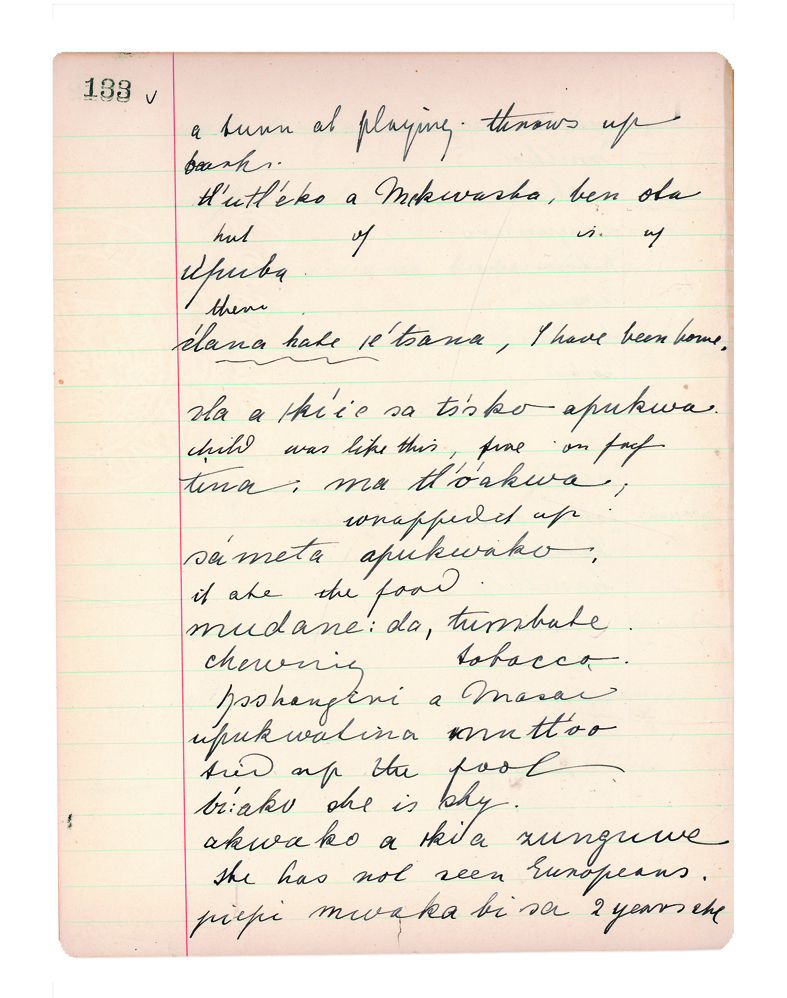 133 v
a turn at playing. throws up
barks.
tl'utl'éko a Mekwasha, ben ota
hut of is of
úpuba
there
élana hate ie'tsana, I have been home.
sla a kíie sa tísko apukwa.
child was like this, fire on
tina. ma tl'óakwa,
wrapped it up
sámeta apukwako,
it ate the food.
mudane:da, tumbate.
chewing tobacco.
a Masae
upukwatina mutl'oo
tied up the food
bí:ako she is shy.
akwako a kia zunguwe
she has not seen Europeans.
piepi mwaka bi sa 2 years